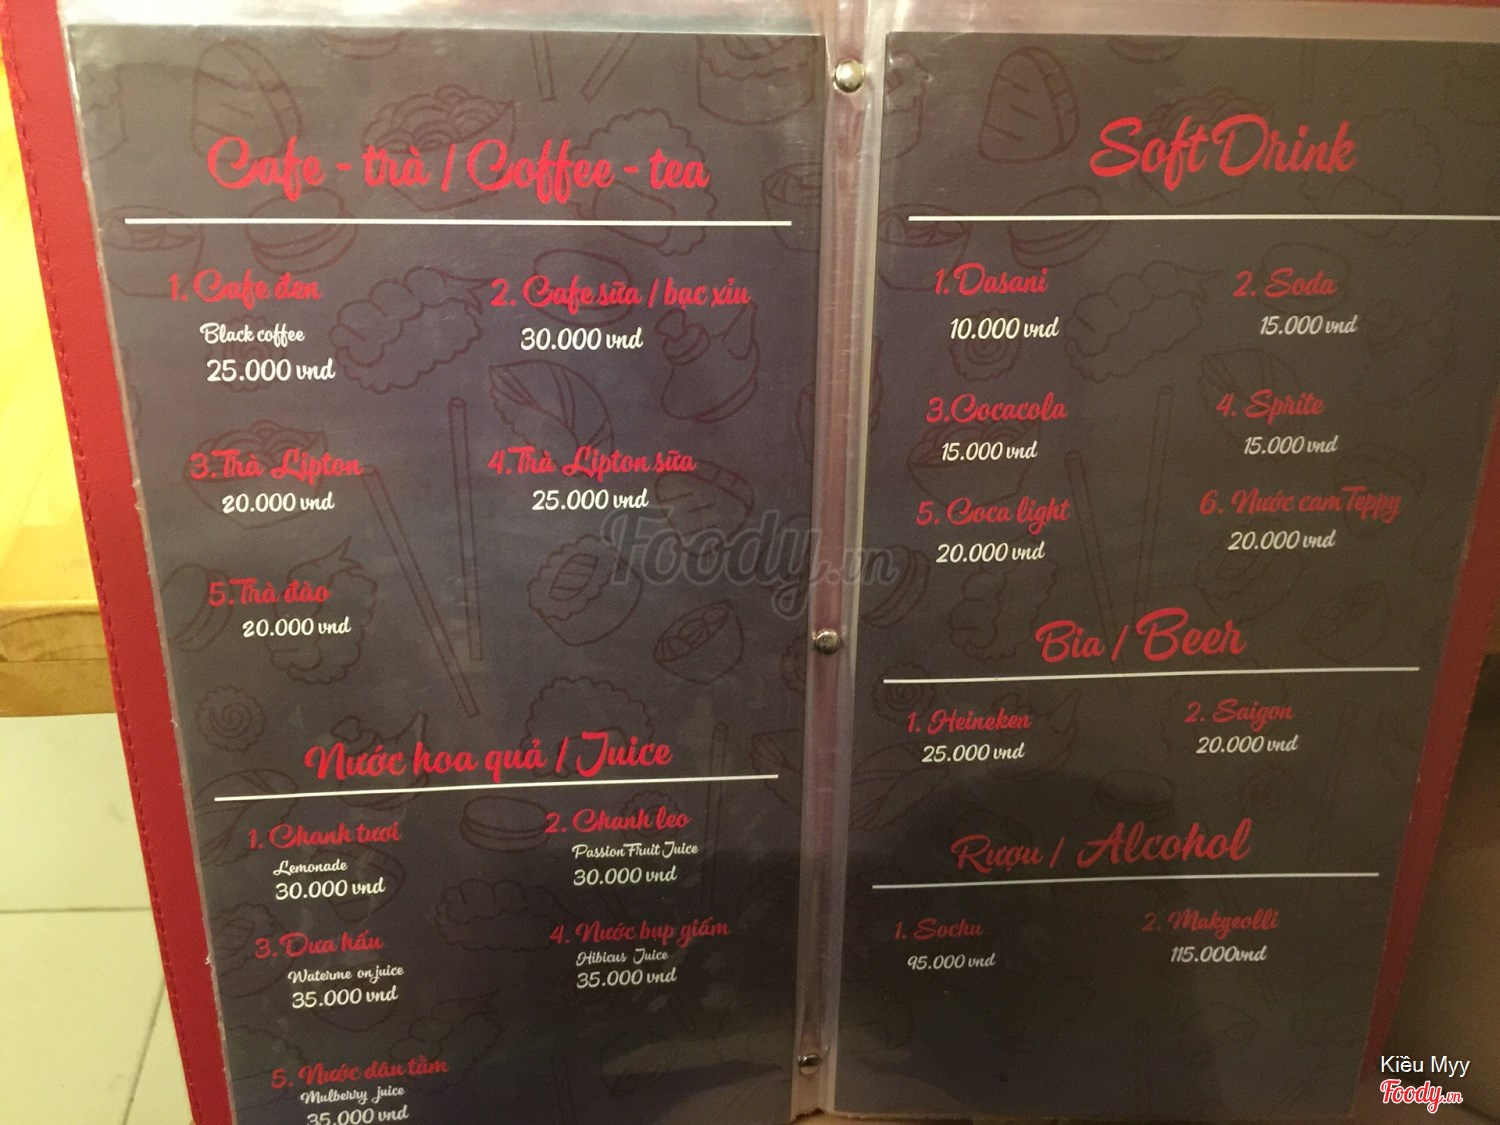 Cafe - trà / Coffee - tea
1. Cafe đen
Black coffee
25.000 vnd
2. Cafe sữa / bạc xỉu
30.000 vnd
3. Trà Lipton
20.000 vnd
4. Trà Lipton sữa
25.000 vnd
5. Trà đào
20.000 vnd
Nước hoa quả / Juice
1. Chanh tươi
Lemonade
30.000 vnd
2. Chanh leo
Passion Fruit Juice
30.000 vnd
3. Dưa hấu
Waterme on juice
35.000 vnd
4. Nước bụp giấm
Hibicus Juice
35.000 vnd
5. Nước dâu tằm
Mulberry juice
35.000 vnd
Soft Drink
1. Dasani
10.000 vnd
2. Soda
15.000 vnd
3. Cocacola
15.000 vnd
4. Sprite
15.000 vnd
5. Coca light
20.000 vnd
6. Nước cam Teppy
20.000 vnd
Bia / Beer
1. Heineken
25.000 vnd
2. Saigon
20.000 vnd
Rượu / Alcohol
1. Sochu
95.000 vnd
2. Makgeolli
115.000vnd
Foody.vn
Kiều Myy
Foody.vn